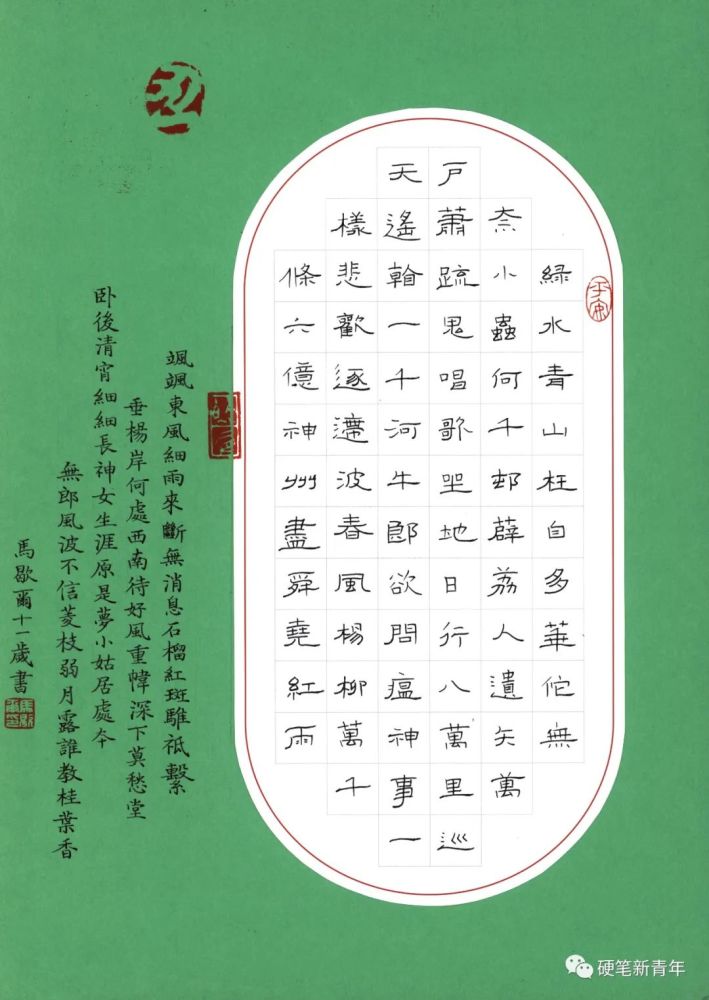 綠水青山枉自多華佗無
奈小蟲何千邨薜荔人遺矢萬
戶蕭疏鬼唱歌坐地日行八萬里巡
天遙翰一千河牛郎欲問瘟神事一
樣悲歡逐遰波春風楊柳萬千
條六億神州盡舜堯紅雨
平安
颯颯東風細雨來斷無消息石榴紅斑騅祗繫
垂楊岸何處西南待好風重幃深下莫愁堂
卧後清宵細細長神女生涯原是夢小姑居處本
無郎風波不信菱枝弱月露誰教桂葉香
馬歇爾十一歲書
硬笔新青年